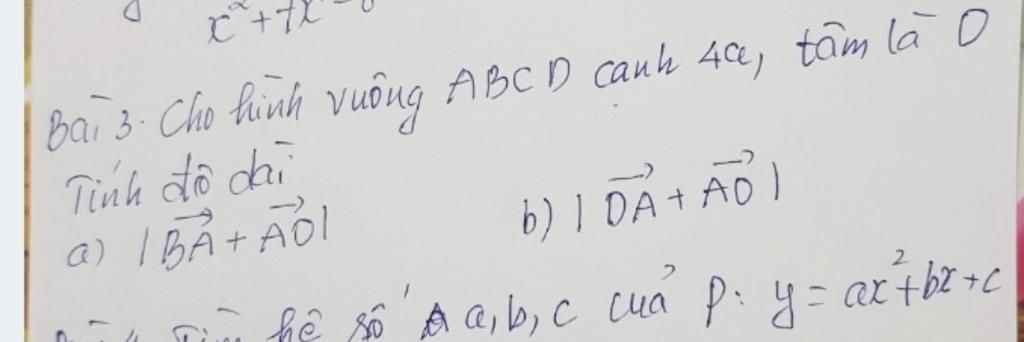 x² + 7x
Bài 3. Cho hình vuông ABCD cạnh 4a, tâm là O
Tính độ dài
a) |BA→ + AO→| b) |OA→ + AO→|
Tìm hệ số a, b, c của P: y = ax² + bx + c